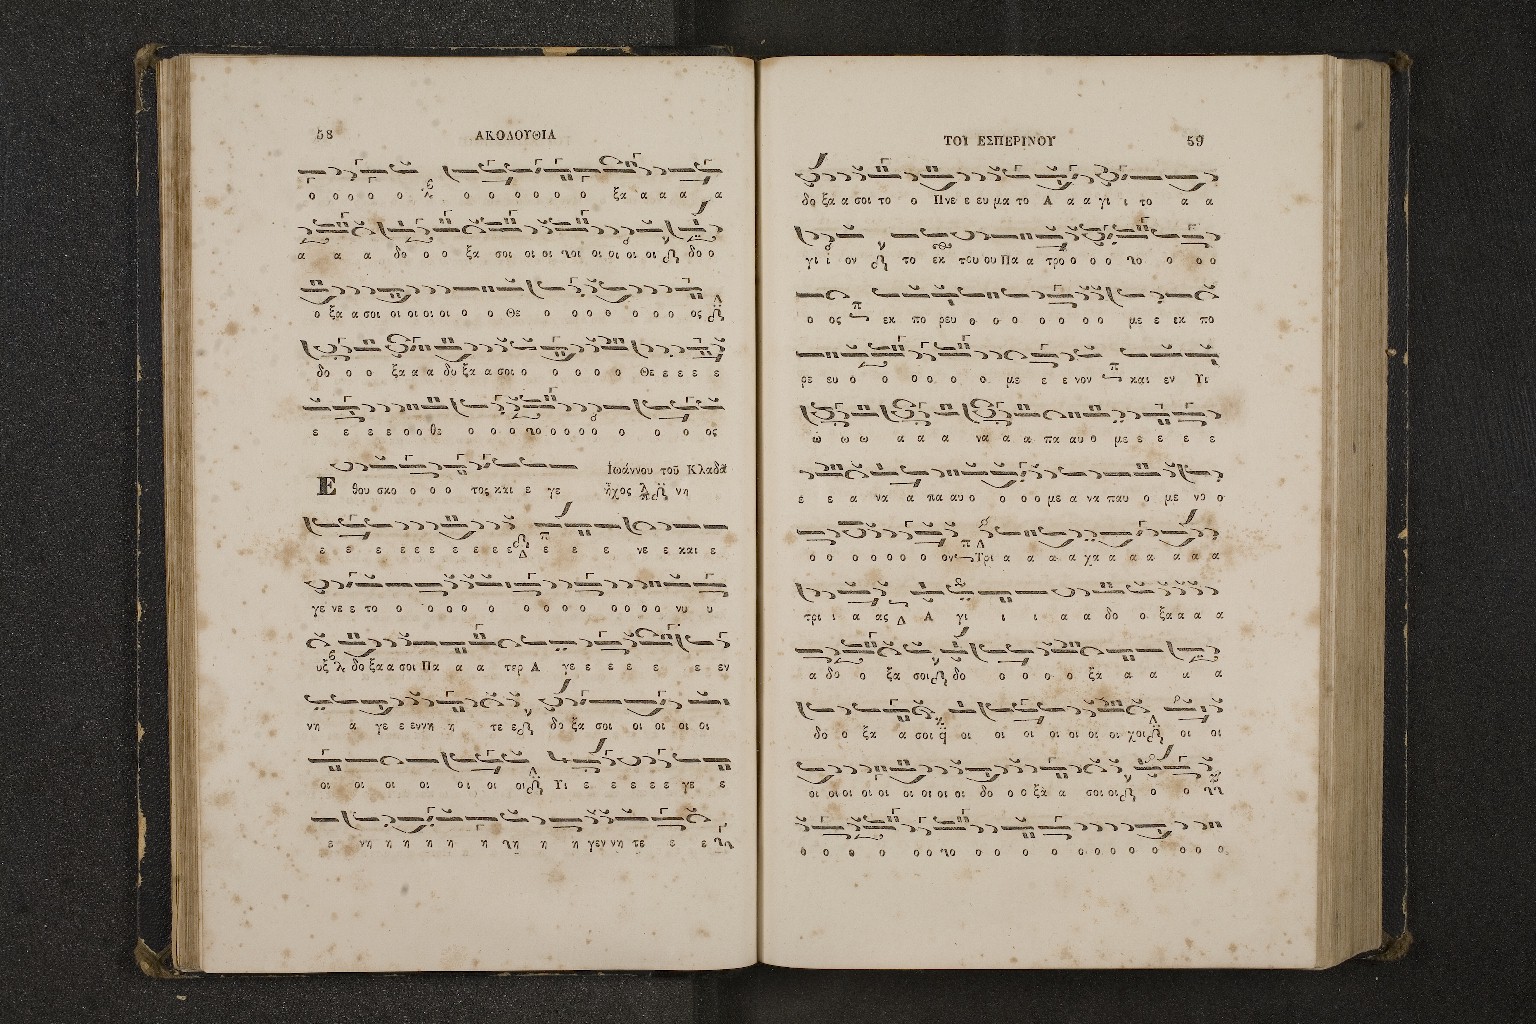 58
ΑΚΟΛΟΥΘΙΑ
ο ο ο ο ο ο ο ο ο ο ο ξα α α α α
α α α δο ο ο ξα σοι οι οι οι οι οι οι οι δο ο
ο ξα α σοι οι οι οι οι ο ο Θε ο ο ο ο ο ο ο ος
δο ο ο ξα α α δο ξα α σοι ο ο ο ο ο Θε ε ε ε ε
ε ε ε ε ο ο θε ο ο ο ο ο ο ο ο ο ο ος
Ἰωάννου τοῦ Κλαδᾶ
Ε θου σκο ο ο ο τος και ε γε ἦχος νη
ε ε ε ε ε ε ε ε ε ε ε ε ε ε νε ε και ε
γε νε ε το ο ο ο ο ο ο ο ο ο ο ο ο ο νυ υ
υξ δο ξα α σοι Πα α α τερ Α γε ε ε ε ε ε εν
νη α γε ε εννη η τε ε δο ξα σοι οι οι οι οι
οι οι οι οι οι οι οι Υι ε ε ε ε ε γε ε
ε νη η η η η η η η γεν νη τε ε ε
ΤΟΥ ΕΣΠΕΡΙΝΟΥ
59
δο ξα α σοι το ο Πνε ε ευ μα το Α α α γι ι το α α
γι ι ον το εκ του ου Πα α τρο ο ο ο ο ο ο
ο ος εκ πο ρευ ο ο ο ο ο ο ο με ε εκ πο
ρε ευ ο ο ο ο ο ο με ε ε νον και εν Υι
ω ω ω α α α να α α πα αυ ο με ε ε ε ε
ε ε α να α πα αυ ο ο ο ο με α να παυ ο με νο ο
ο ο ο ο ο ο ο ον Τρι α α α α χα α α α α α α
τρι ι α ας Α γι ι ι α α δο ο ξα α α α
α δο ο ξα σοι δο ο ο ο ο ξα α α α α
δο ο ξα α σοι οι οι οι οι οι οι οι χοι οι οι
οι οι οι οι οι οι οι οι οι δο ο ο ξα α σοι οι ο ο
ο ο ο ο ο ο ο ο ο ο ο ο ο ο ο ο ο ο ο